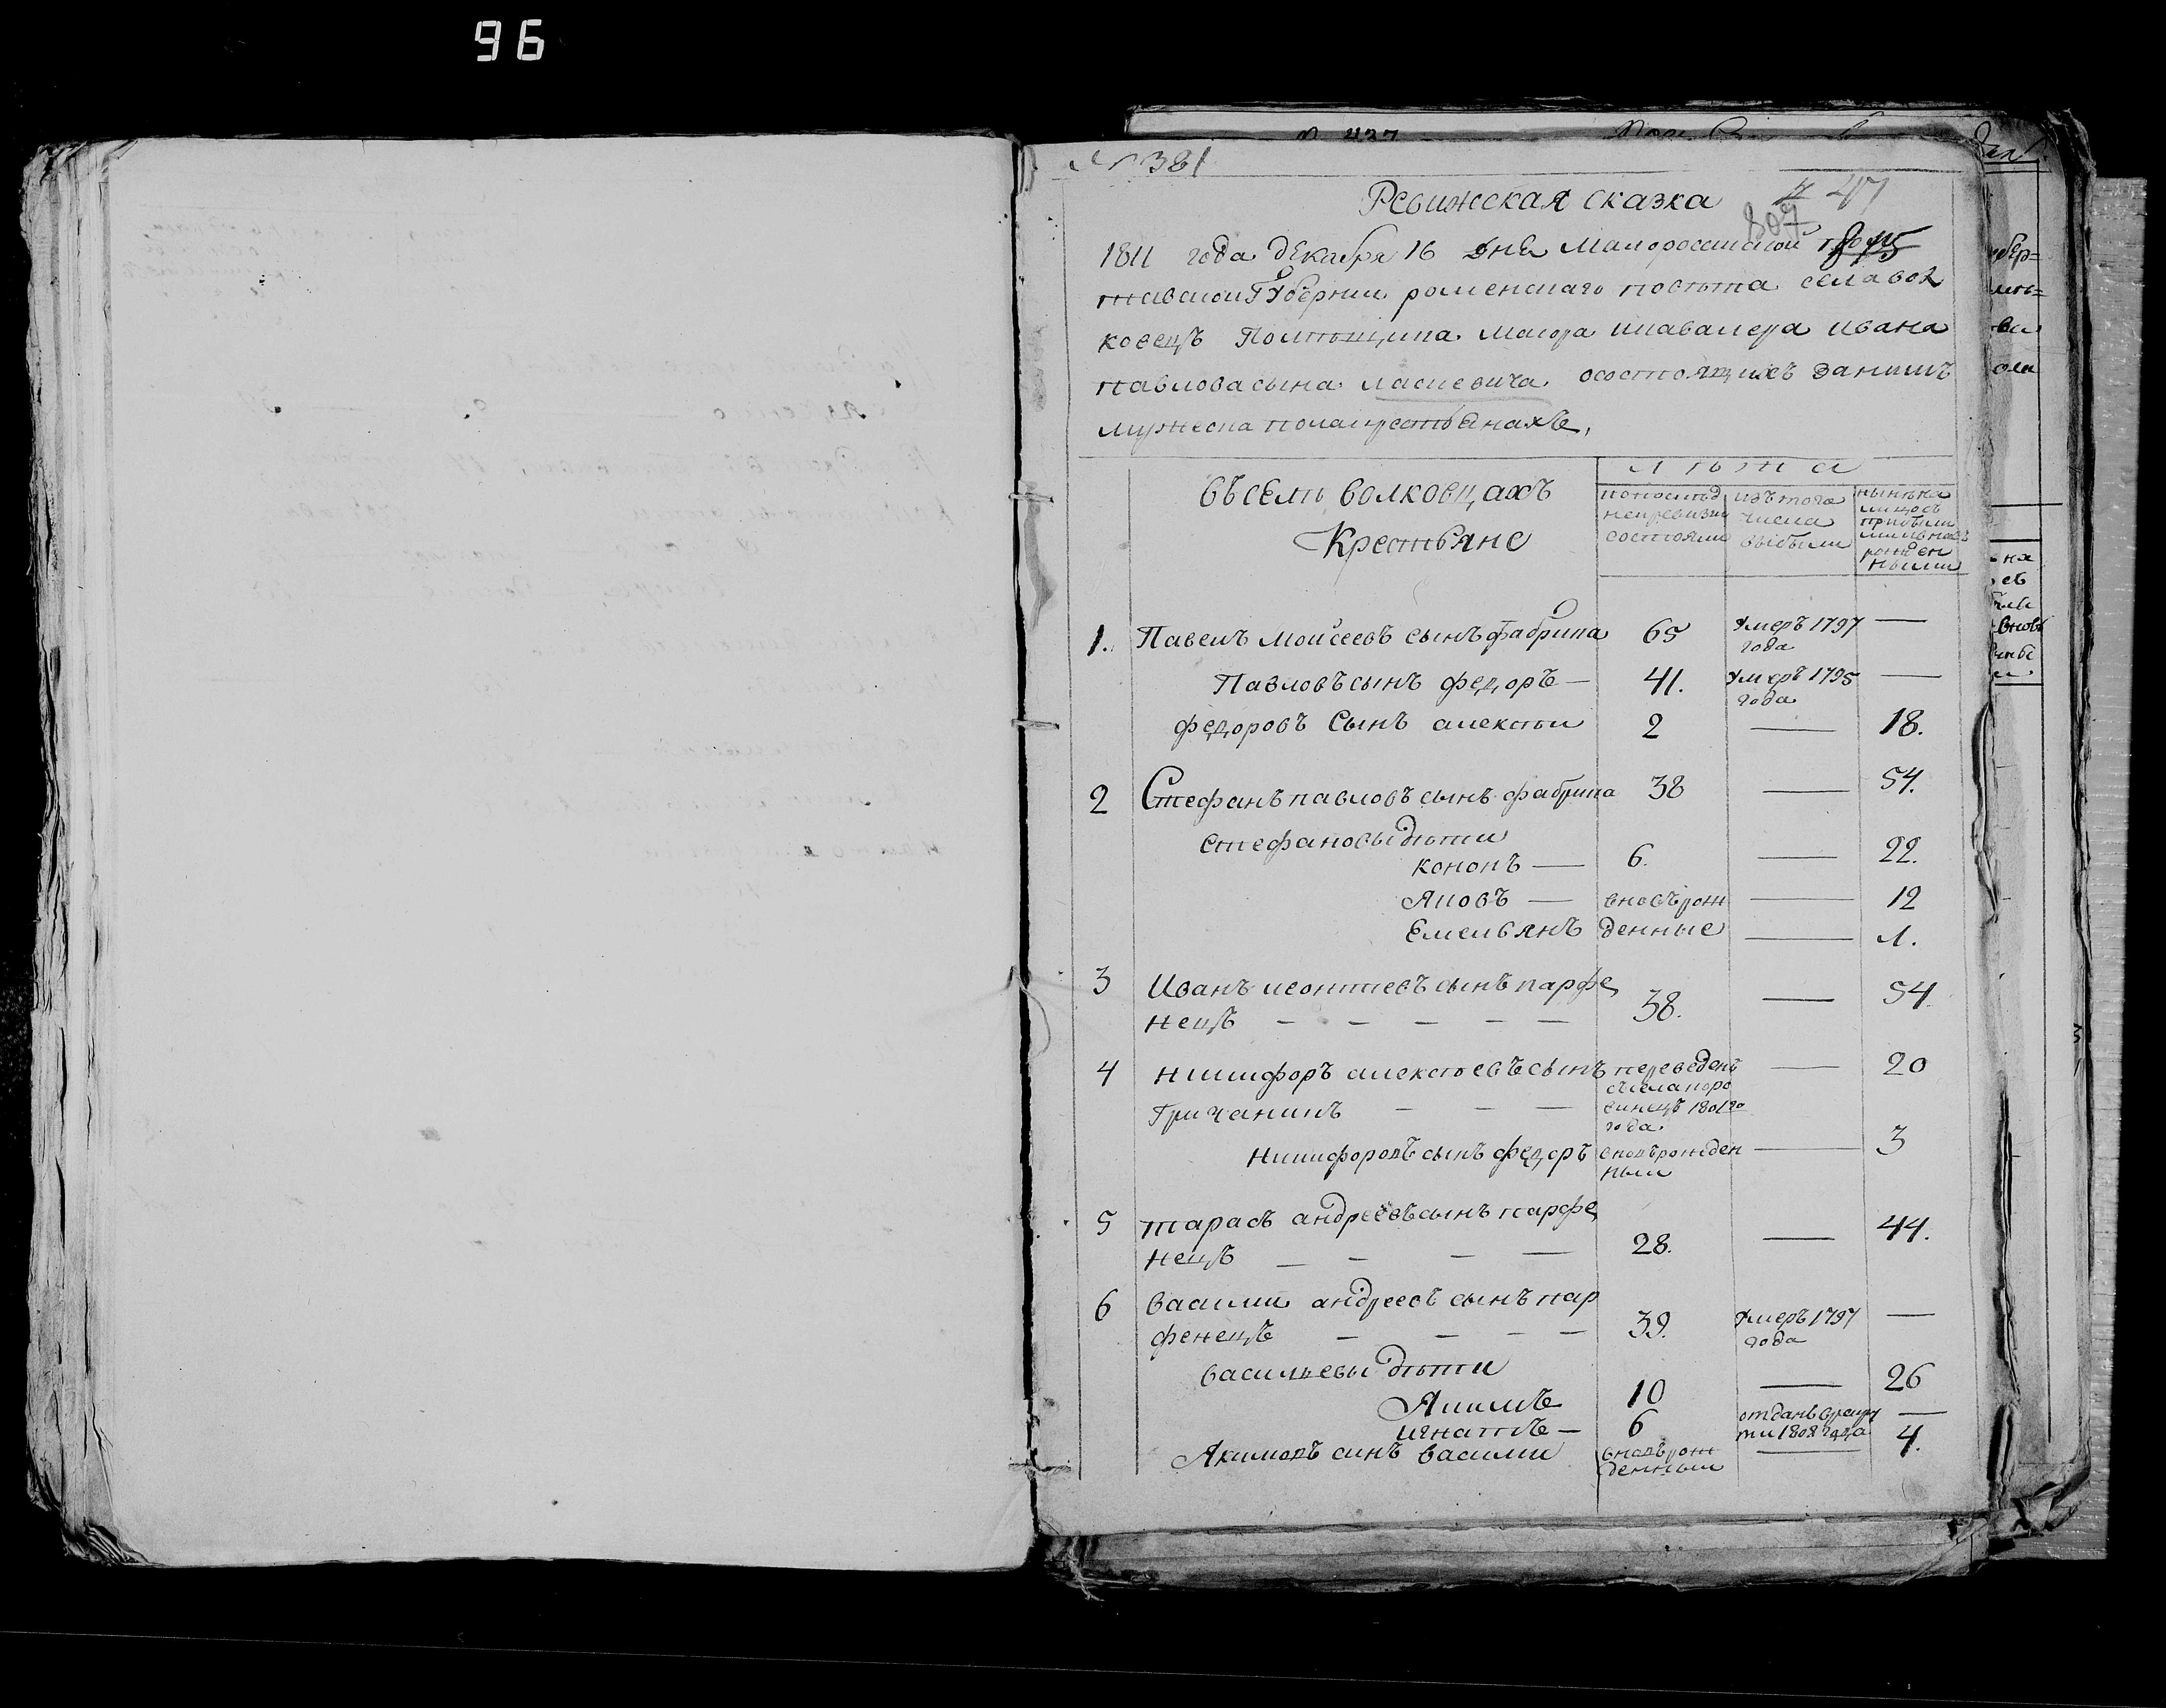 96
№ 381
Ревижская сказка 47
807
1811 года декабря 16 дня Малоросииской
тавской Губернии роменского повѣта села вол
ковецъ Помѣщика маиора икавалера ивана
павлова сына ласкевича осостоящихъ занимъ
мужеска полакрестьянахъ,
въселѣ волковцахъ
Крестьяне
лѣта
попослѣд
неиревизии
состояли
изътого
числа
выбыли
нынѣна
лицосъ
прибыли
рожден
ными
1. Павелъ Моисеевъ сынъ фабрика 65 Умеръ 1797 —
года
Павловъ сынъ федоръ — 41. Умеръ 1795 —
года
федоровъ сынъ алексѣи 2 — 18.
2 Стефанъ павловъ сынъ фабрика 38 — 54.
стефановы дѣти
кононъ — 6. — 22.
Яковъ — вновърож — 12
Емельянъ денные — 1.
3 Иванъ леонтиевъ сынъ парфе
нецъ — — — — — 38. — 54.
4 никифоръ алексѣевъ сынъ переведенъ — 20
Гричанинъ — — — синецъ 1801го
года.
никифоровъ сынъ федоръ вновърожден — 3
ныи
5 тарасъ андреевъ сынъ парфе
нецъ — — — — 28. — 44.
6 василии андреевъ сынъ пар
фенецъ — — — — 39. Умеръ 1797 —
года
васильевы дѣти
Якимъ 10 — 26
игнатъ — 6 отданъ врекру —
ти 1808 года
Якимовъ синъ василии вновърож — 4.
денныи